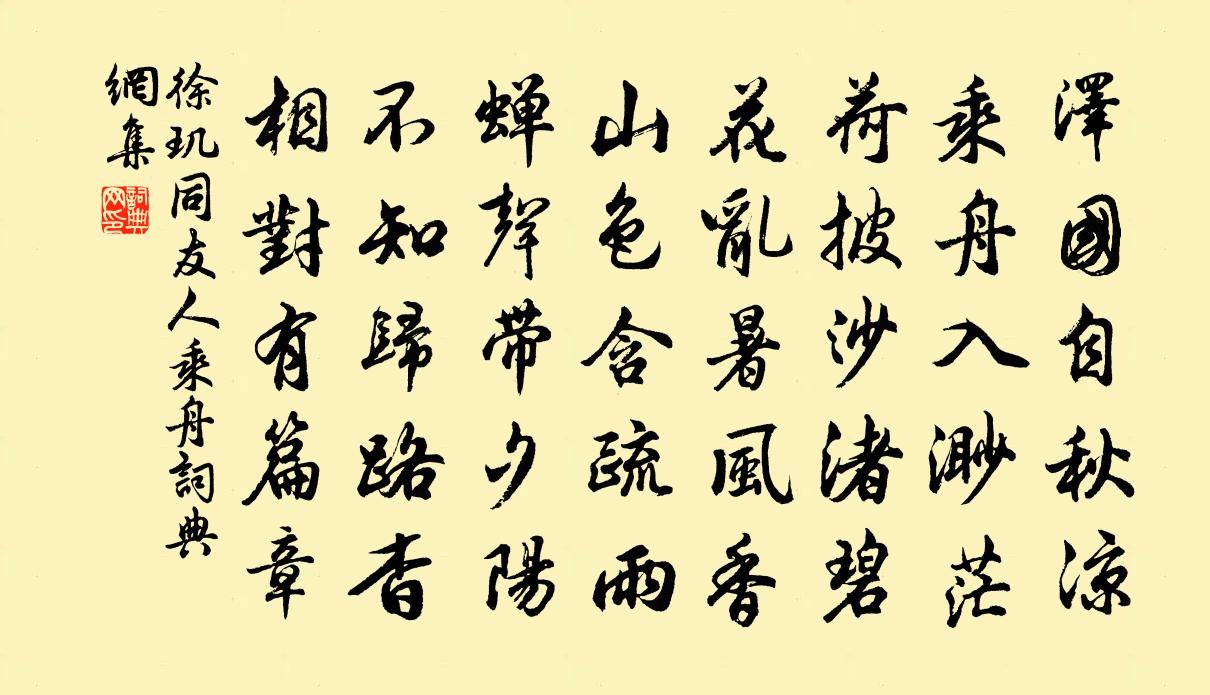 澤國自秋涼
乘舟入渺茫
荷披沙渚碧
花亂暑風香
山色含疏雨
蟬聲帶夕陽
不知歸路杳
相對有篇章
徐璣同友人乘舟詞典
網集
詞典網印